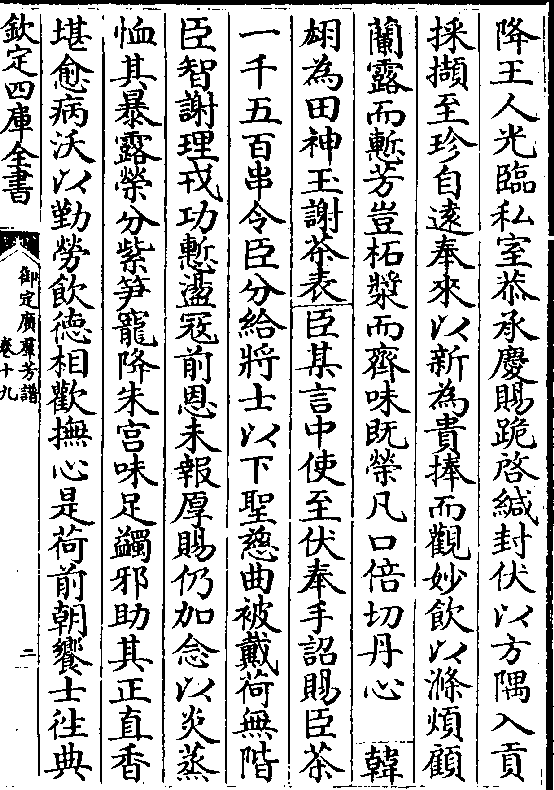 降王人光臨私室恭承慶賜跪啓緘封伏以方隅入貢
採擷至珍自逺奉來以新為貴捧而觀妙飲以滌煩顧
蘭露而慙芳豈柘漿而齊味既榮凡口倍切丹心 韓
翃為田神玉謝茶表臣某言中使至伏奉手詔賜臣茶
一千五百串令臣分給將士以下聖慈曲被戴荷無階
臣智謝理戎功慙盪冦前恩未報厚賜仍加念以炎蒸
恤其暴露榮分紫笋寵降朱宫味足蠲邪助其正直香
堪愈病沃以勤勞飲徳相歡撫心是荷前朝饗士徃典
欽定四庫全書
御定廣羣芳譜
卷十九
二